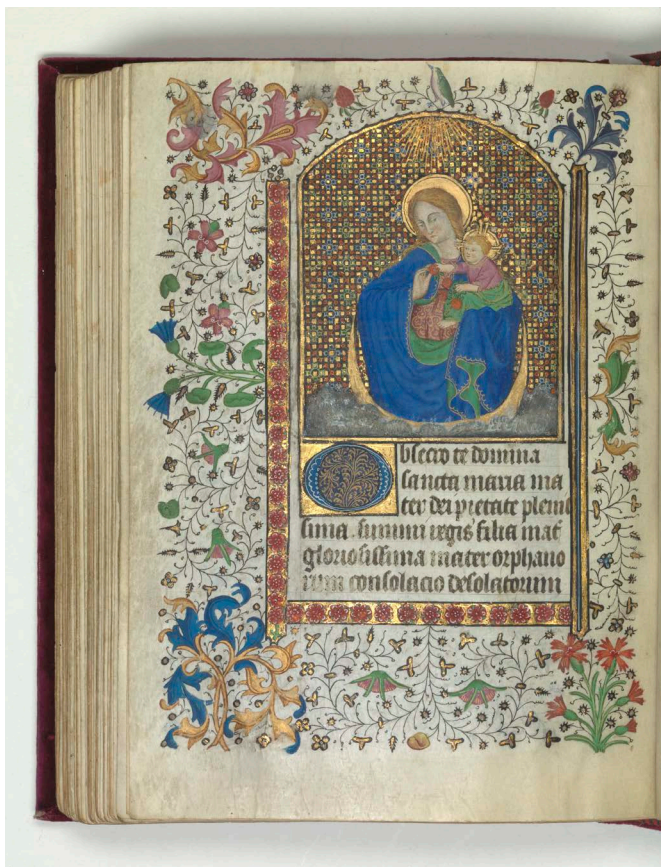 Obsecro te domina
sancta maria ma
ter dei pietate pleniſ
sima. summi regis filia mat̉
gloriosissima mater orphano
rum consolacio desolatorum